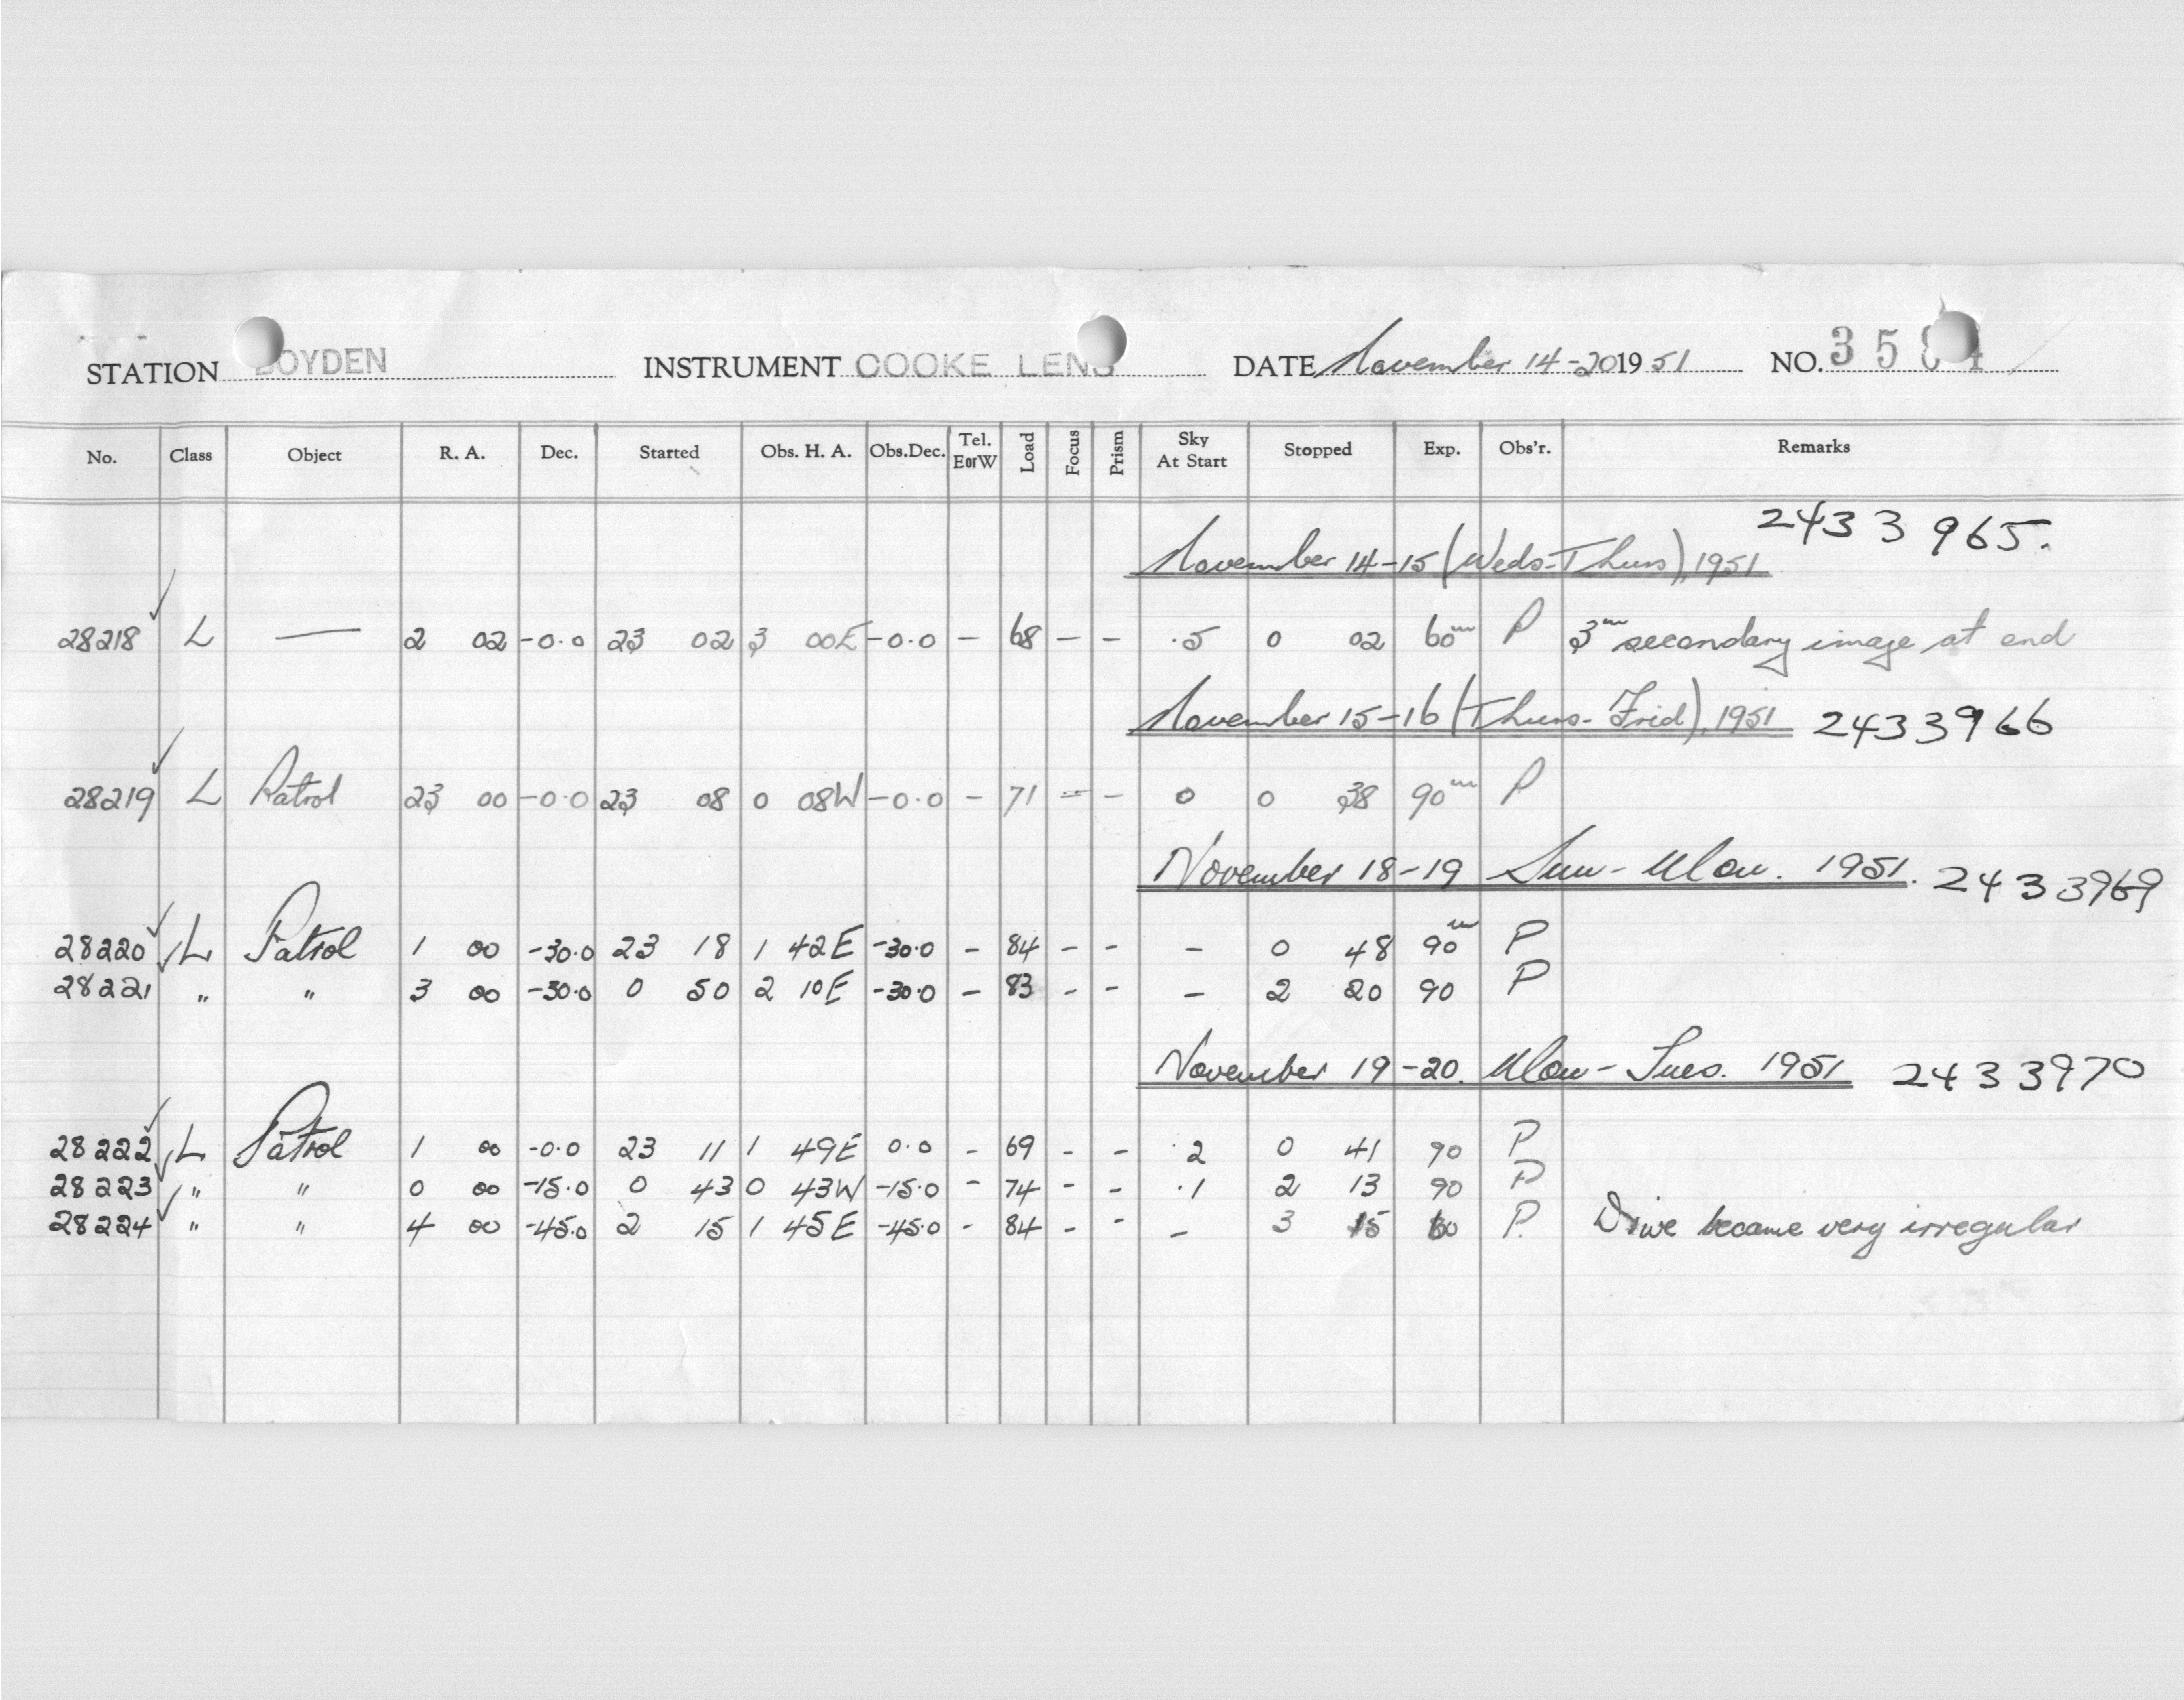 STATION BOYDEN INSTRUMENT COOKE LENS DATE November 14-20 1951 NO. 35
No. Class Object R. A. Dec. Started Obs. H. A. Obs.Dec. Tel. EorW Load Focus Prism Sky At Start Stopped Exp. Obs'r. Remarks
2433965.
November 14-15 (Weds-Thurs), 1951
28218 L — 2 02 -0.0 23 02 3 00E -0.0 - 68 - - .5 0 02 60m P 3m secondary image at end
November 15-16 (Thurs-Frid), 1951 2433966
28219 L Patrol 23 00 -0.0 23 08 0 08W -0.0 - 71 - - 0 0 38 90m P
November 18-19 Sun-Mon. 1951. 2433969
28220 L Patrol 1 00 -30.0 23 18 1 42E -30.0 - 84 - - - 0 48 90m P
28221 " " 3 00 -30.0 0 50 2 10E -30.0 - 83 - - - 2 20 90 P
November 19-20. Mon-Tues. 1951 2433970
28222 L Patrol 1 00 -0.0 23 11 1 49E 0.0 - 69 - - .2 0 41 90 P
28223 " " 0 00 -15.0 0 43 0 43W -15.0 - 74 - - .1 2 13 90 P
28224 " " 4 00 -45.0 2 15 1 45E -45.0 - 84 - - - 3 15 60 P. Drive became very irregular